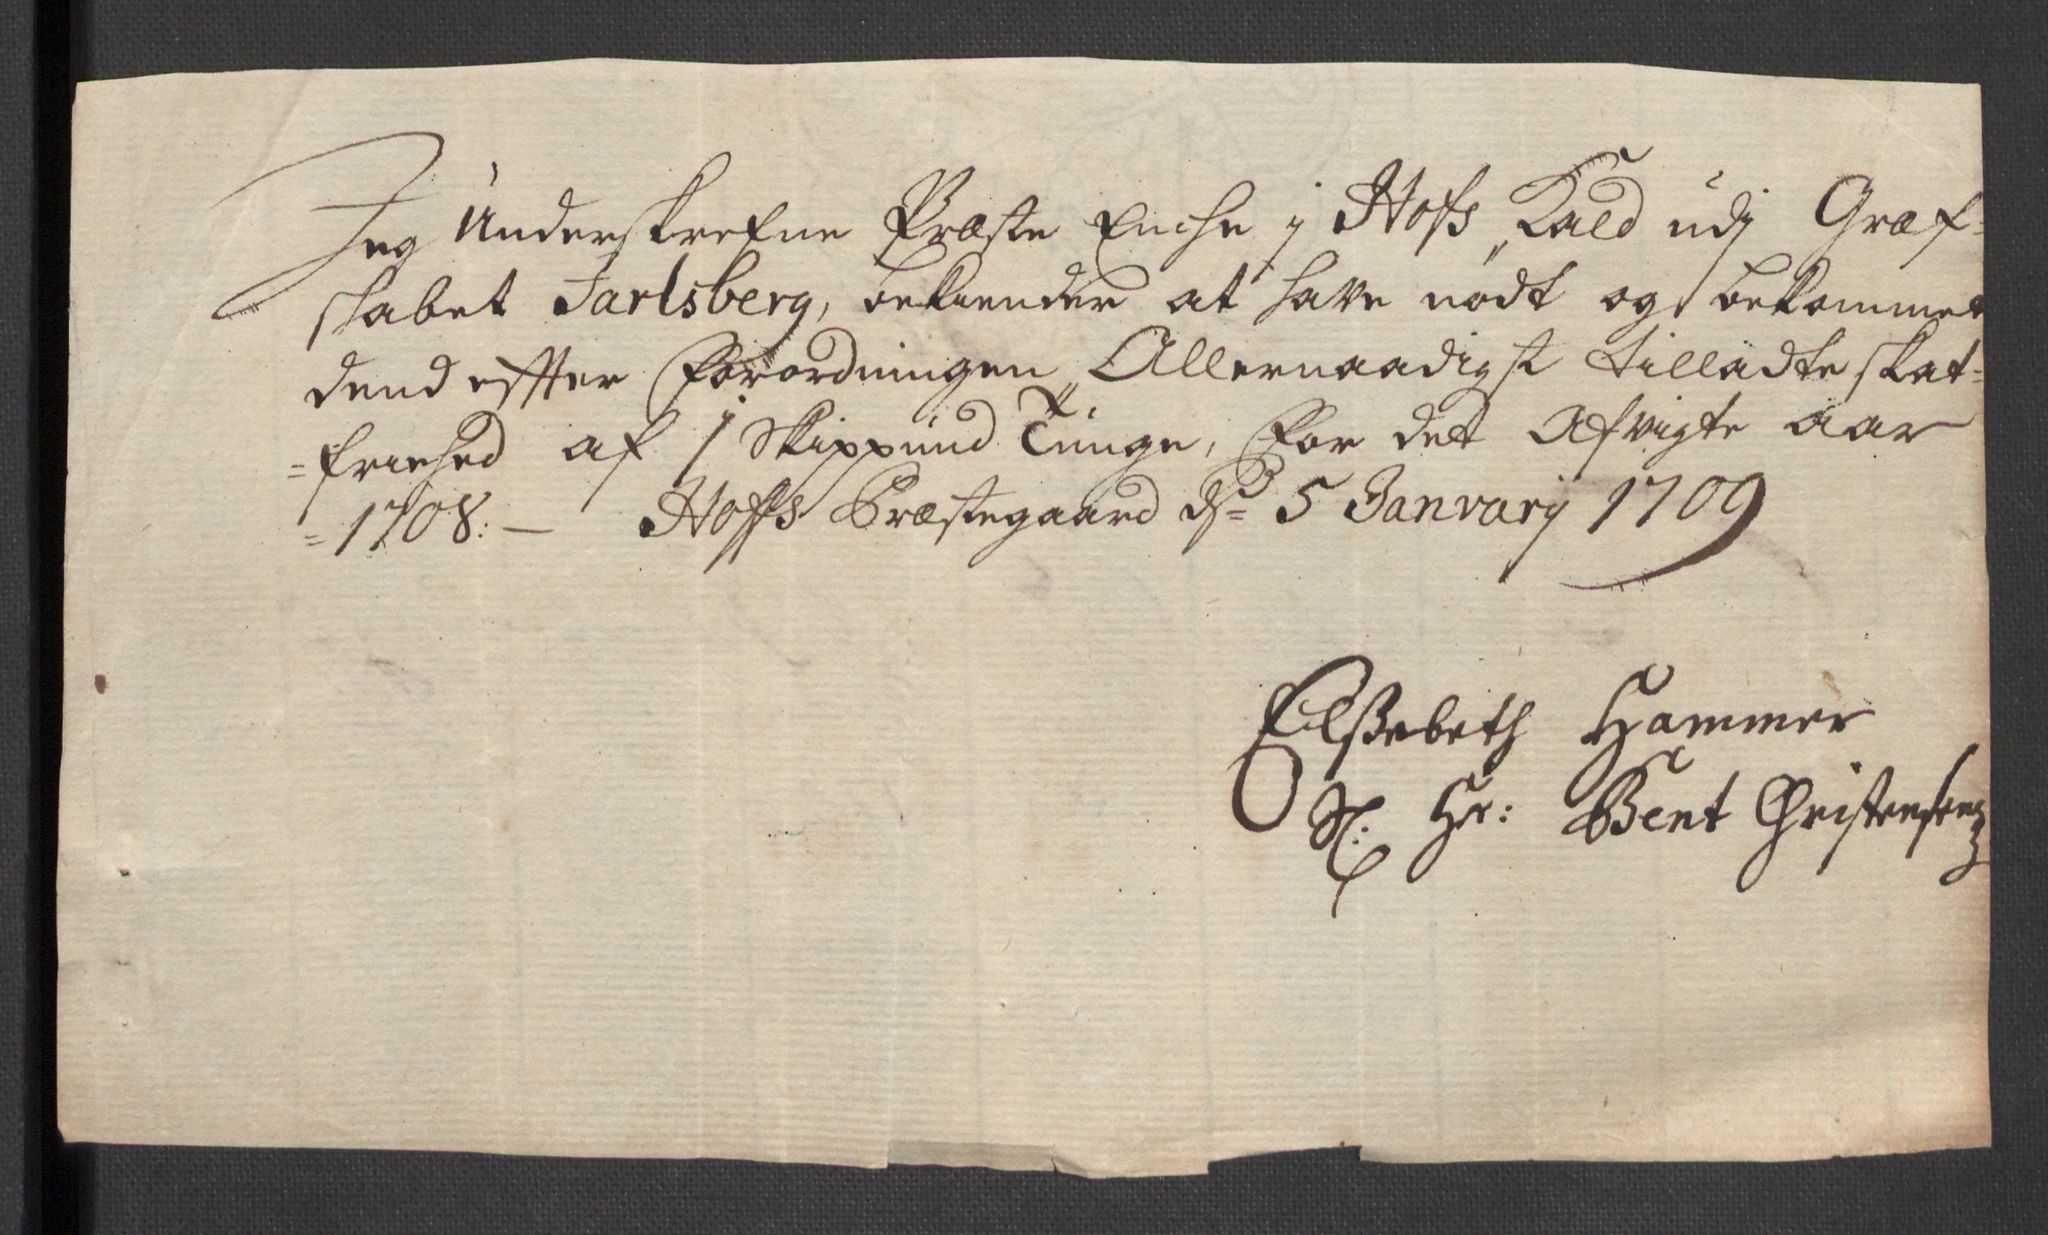 Jeg Underskrefne Præste Enche j Hofs Kald udj Græf-
skabet Jarlsberg, bekiender at have nødt og bekommet
dend effter Forordningen Allernaadigst tilladte skat-
=friehed af 1 Skippund Tunge, for det Afvigte aar
=1708: — Hoffs Præstegaard ds= 5 Janvarij 1709
Elssebeth Hammer
Sl. Hr: Bent Christensens